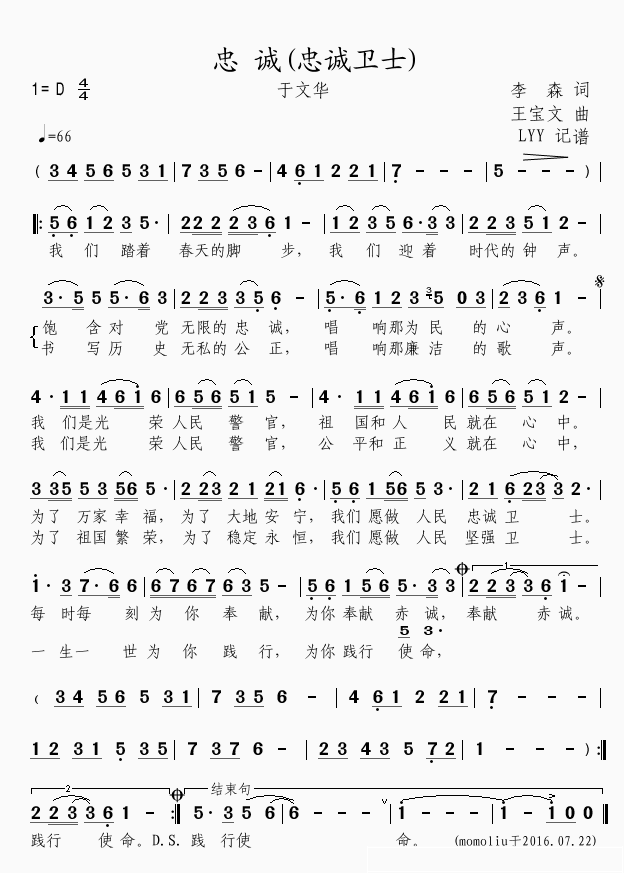 忠 诚(忠诚卫士)
1= D 4/4
于文华
李 森 词
王宝文 曲
♩=66
LYY 记谱
( 3 4 5 6 5 3 1 | 7 3 5 6 - | 4 6 1 2 2 1 | 7 - - - | 5 - - - ) |
|: 5 6 1 2 3 5 · | 2 2 2 2 3 6 1 - | 1 2 3 5 6 · 3 3 | 2 2 3 5 1 2 - |
我 们 踏着 春天的脚 步, 我 们 迎 着 时代的 钟 声。
3 · 5 5 5 · 6 3 | 2 2 3 3 5 6 - | 5 · 6 1 2 3 3 5 0 3 | 2 3 6 1 - |
饱 含 对 党 无限的 忠 诚, 唱 响那为 民 的 心 声。
书 写 历 史 无私的 公 正, 唱 响那廉 洁 的 歌 声。
4 · 1 1 4 6 1 6 | 6 5 6 5 1 5 - | 4 · 1 1 4 6 1 6 | 6 5 6 5 1 2 - |
我 们是光 荣 人民 警 官, 祖 国和 人 民 就在 心 中。
我 们是光 荣 人民 警 官, 公 平和 正 义 就在 心 中,
3 3 5 5 3 5 6 5 · | 2 2 3 2 1 2 1 6 · | 5 6 1 5 6 5 3 5 · | 2 1 6 2 3 3 2 · |
为了 万家 幸 福, 为了 大地 安 宁, 我们 愿做 人民 忠诚 卫 士。
为了 祖国 繁 荣, 为了 稳定 永 恒, 我们 愿做 人民 坚强 卫 士。
1 · 3 7 · 6 6 | 6 7 6 7 6 3 5 - | 5 6 1 5 6 5 · 3 3 | 1 2 2 3 3 6 1 - |
每 时每 刻 为 你 奉 献, 为你 奉献 赤 诚, 奉献 赤 诚。
5 3 ·
一 生一 世 为 你 践 行, 为你 践行 使 命,
( 3 4 5 6 5 3 1 | 7 3 5 6 - | 4 6 1 2 2 1 | 7 - - - |
1 2 3 1 5 3 5 | 7 3 7 6 - | 2 3 4 3 5 7 2 | 1 - - ) :|
2 结束句
2 2 3 3 6 1 - :| 5 · 3 5 6 | 6 - - - | 1 - - - | 1 - 1 0 0 |
践行 使 命。D.S. 践 行使 命。 (momoliu于2016.07.22)